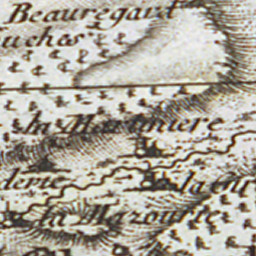 Beauregard
uches
la Martiniere
derie
la Mazourie